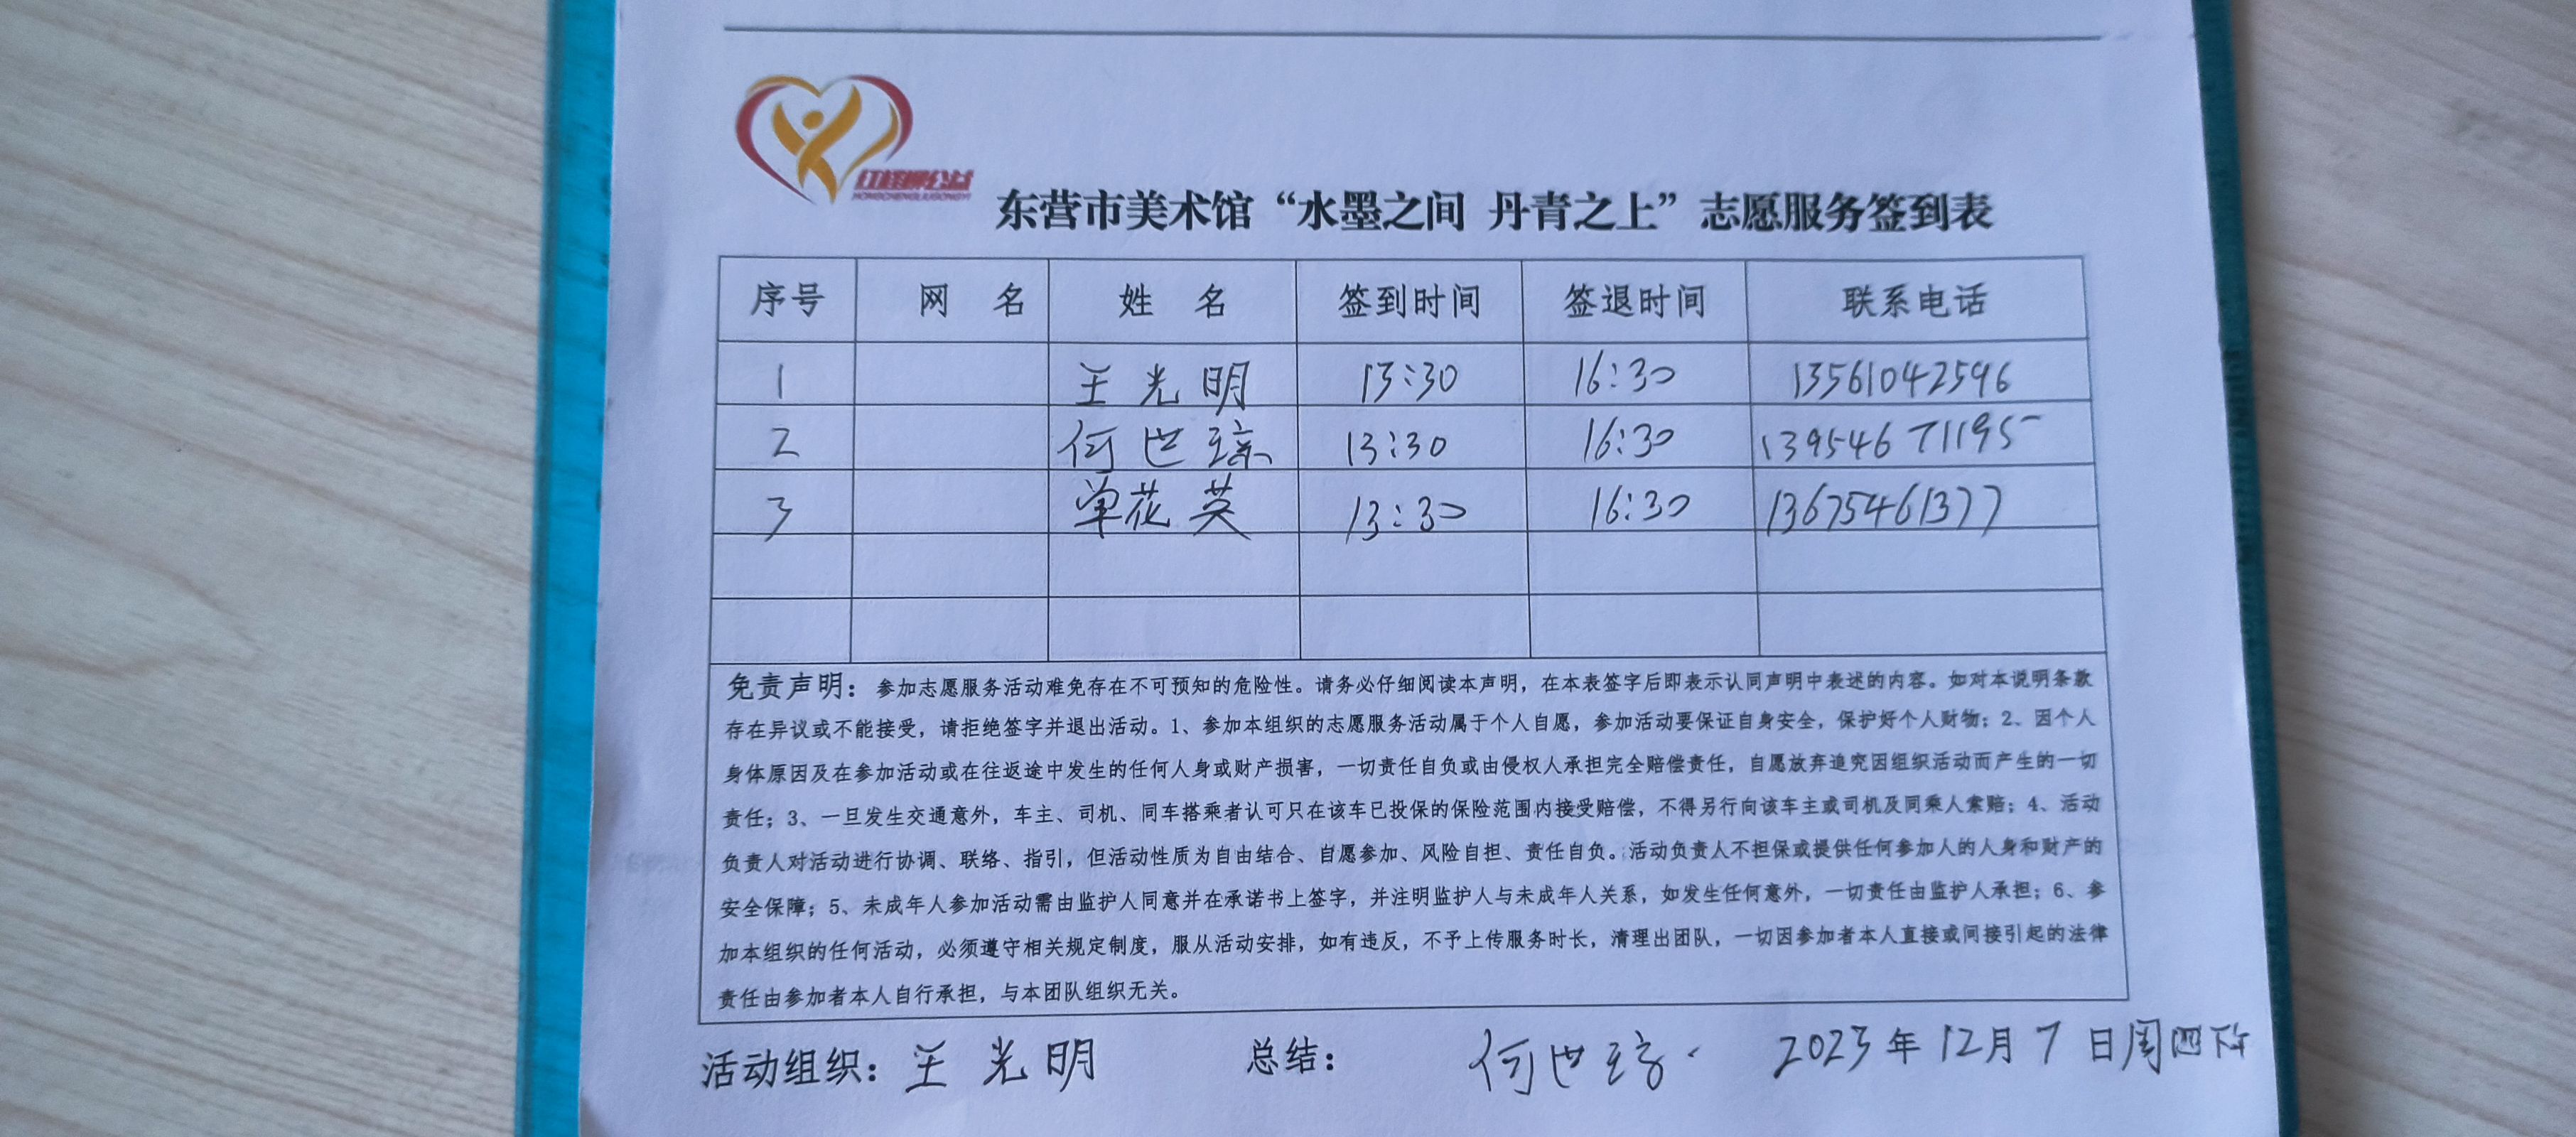 红柽柳公益
HONGCHENGLIUGONGYI
东营市美术馆“水墨之间 丹青之上”志愿服务签到表
序号 网 名 姓 名 签到时间 签退时间 联系电话
1 王光明 13:30 16:30 13561042596
2 何世琼 13:30 16:30 13954671195
3 单花英 13:30 16:30 13675461377
免责声明：参加志愿服务活动难免存在不可预知的危险性。请务必仔细阅读本声明，在本表签字后即表示认同声明中表述的内容。如对本说明条款
存在异议或不能接受，请拒绝签字并退出活动。1、参加本组织的志愿服务活动属于个人自愿，参加活动要保证自身安全，保护好个人财物；2、因个人
身体原因及在参加活动或在往返途中发生的任何人身或财产损害，一切责任自负或由侵权人承担完全赔偿责任，自愿放弃追究因组织活动而产生的一切
责任；3、一旦发生交通意外，车主、司机、同车搭乘者认可只在该车已投保的保险范围内接受赔偿，不得另行向该车主或司机及同乘人索赔；4、活动
负责人对活动进行协调、联络、指引，但活动性质为自由结合、自愿参加、风险自担、责任自负。活动负责人不担保或提供任何参加人的人身和财产的
安全保障；5、未成年人参加活动需由监护人同意并在承诺书上签字，并注明监护人与未成年人关系，如发生任何意外，一切责任由监护人承担；6、参
加本组织的任何活动，必须遵守相关规定制度，服从活动安排，如有违反，不予上传服务时长，清理出团队，一切因参加者本人直接或间接引起的法律
责任由参加者本人自行承担，与本团队组织无关。
活动组织：王光明 总结： 何世琼 2023年12月7日周四下午